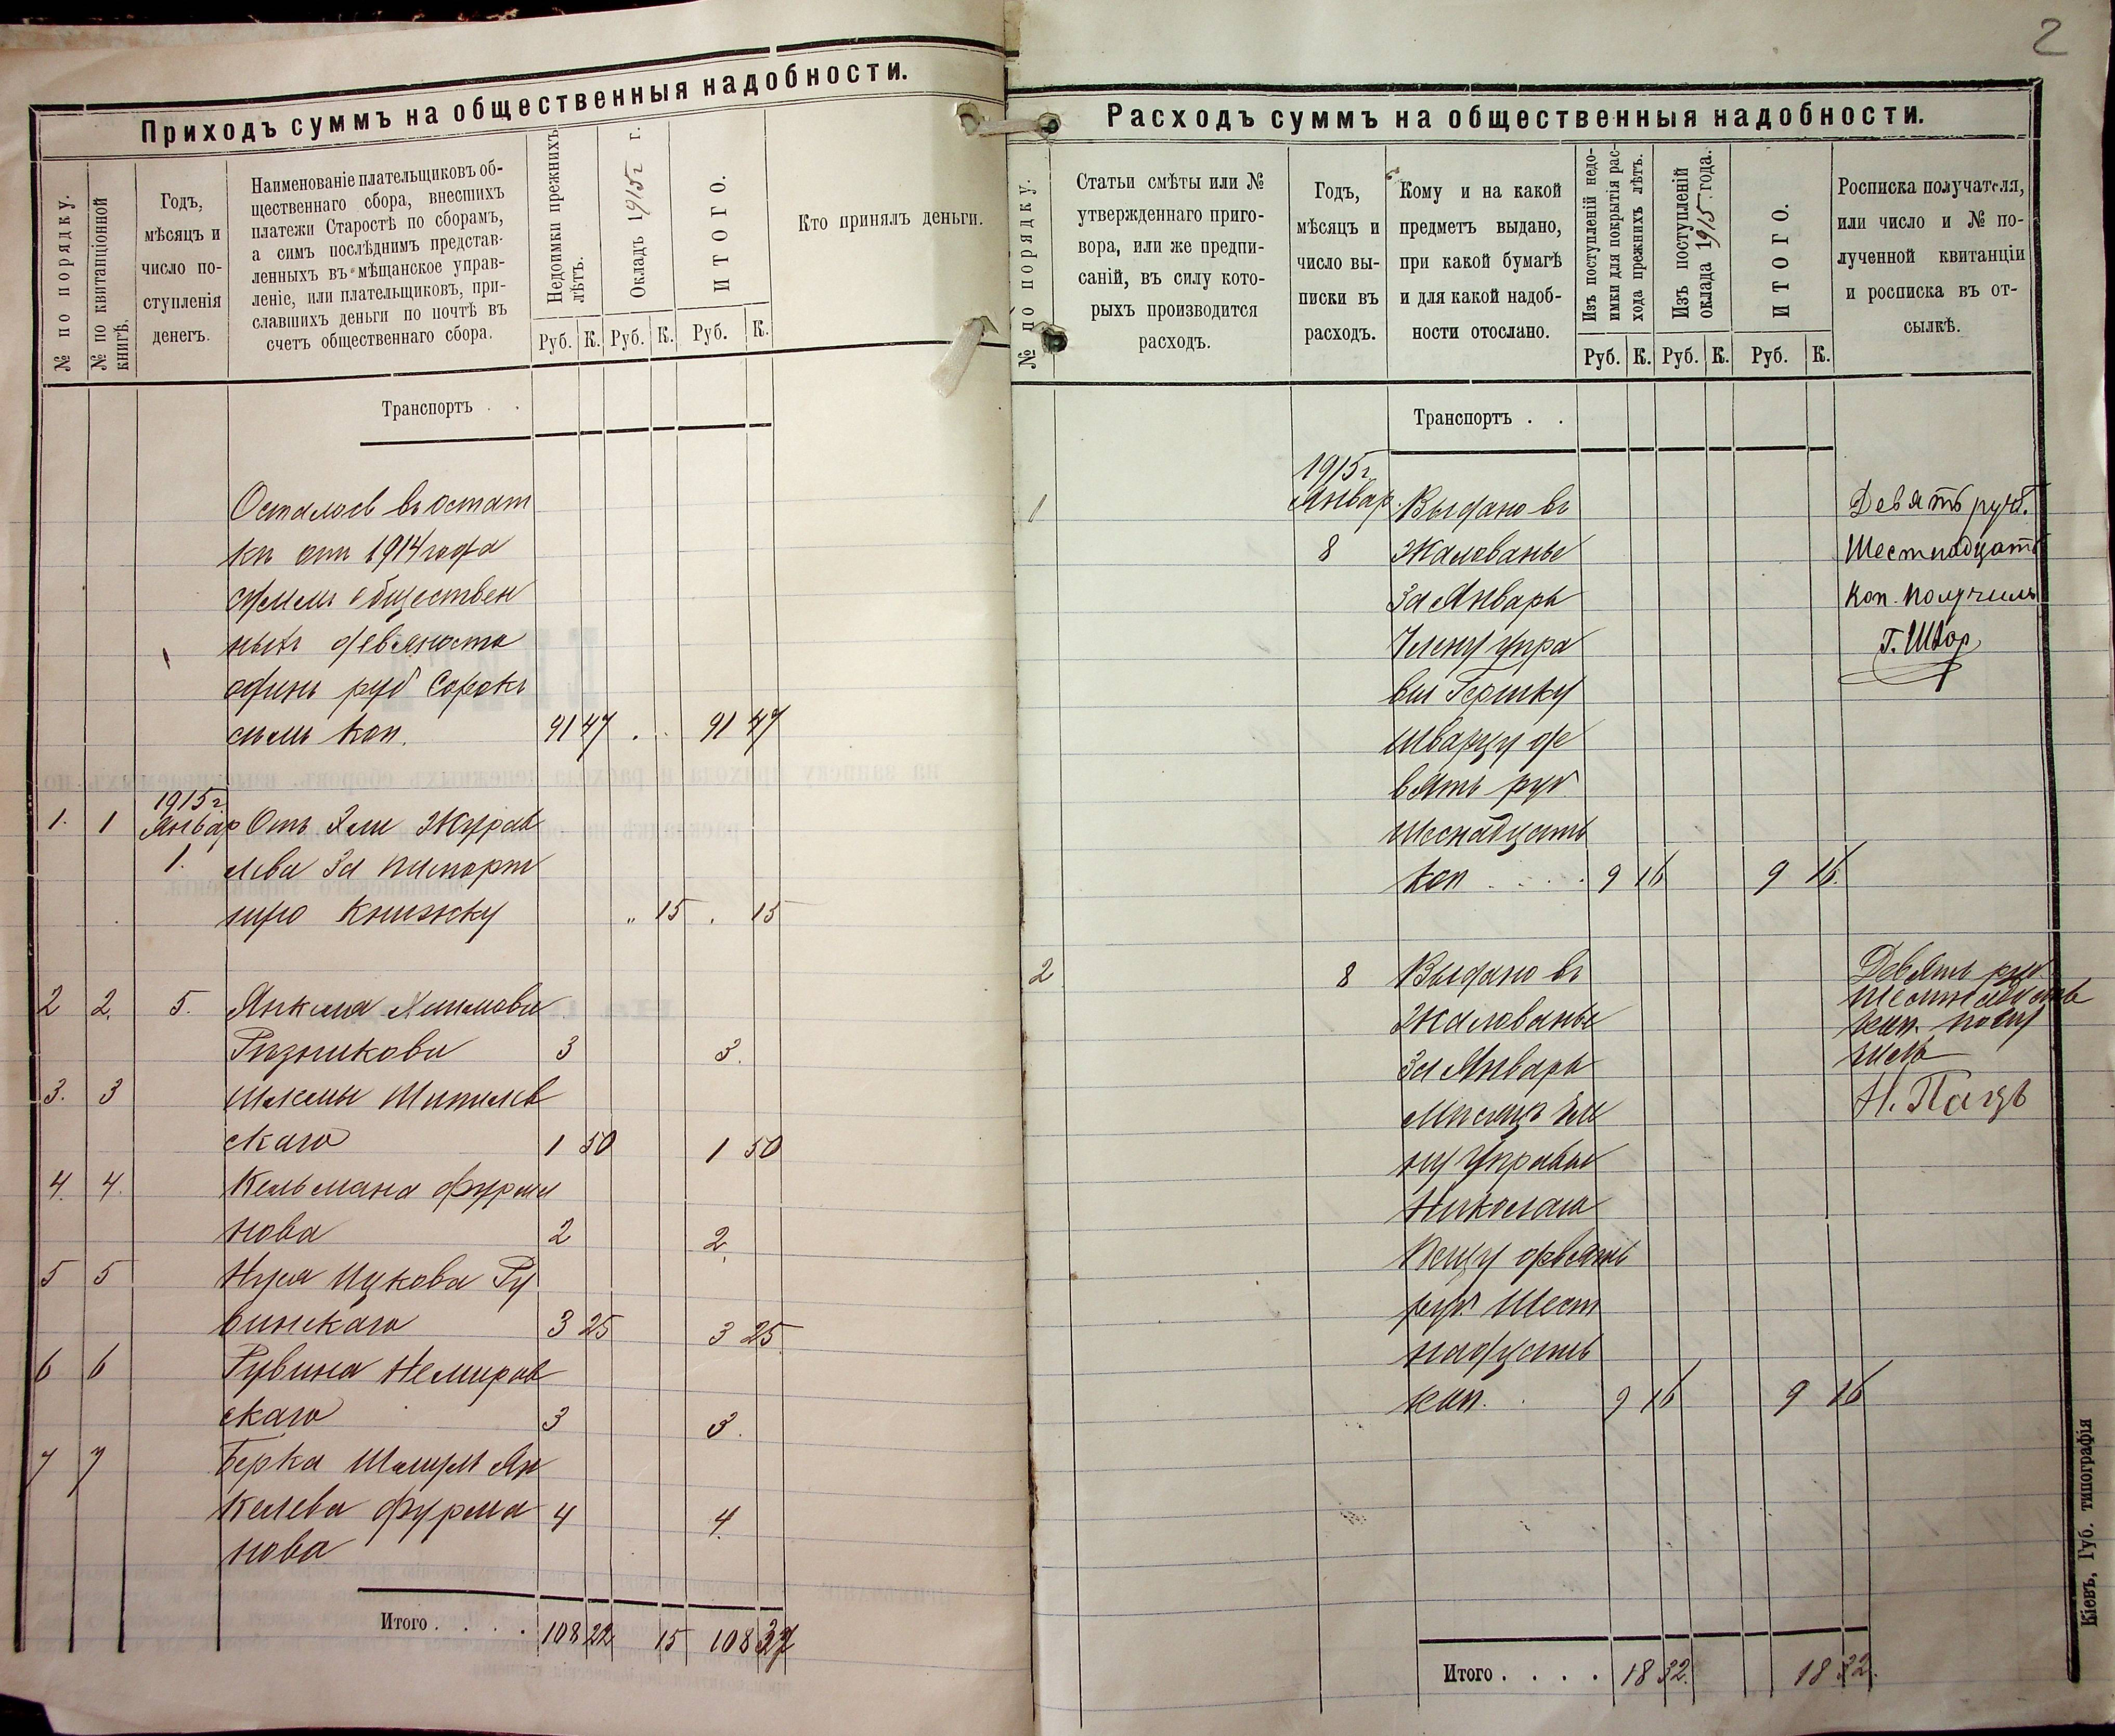 2
Приходъ суммъ на общественныя надобности.
№ по порядку.
№ по квитанціонной
книгѣ.
Годъ,
мѣсяцъ и
число по-
ступленія
денегъ.
Наименованіе плательщиковъ об-
щественнаго сбора, внесшихъ
платежи Старостѣ по сборамъ,
а симъ послѣднимъ представ-
ленныхъ въ мѣщанское управ-
леніе, или плательщиковъ, при-
славшихъ деньги по почтѣ въ
счетъ общественнаго сбора.
Недоимки прежнихъ
лѣтъ.
Окладъ 1915 г.
ИТОГО.
Кто принялъ деньги.
Руб. К. Руб. К. Руб. К.
Транспортъ . .
Осталось въ остат
кѣ отъ 1914 года
суммъ обществен
ныхъ девяносто
одинъ руб сорокъ
семь коп. 91 47 91 47
1915 г
1. 1 Январ Отъ Эли Журав
1. лева за паспорт
ную книжку " 15 . 15
2 2. 5. Янкеля Хаимова
Резникова 3 3.
3. 3 Шлемы Шпилев
скаго 1 50 1 50
4. 4. Кельмана Фурма
нова 2 2.
5 5 Нуся Ицкова Ру
винскаго 3 25 3 25
6 6 Рувина Немиров
скаго 3 3.
7 7 Берка Шмуля Ян
келева Фурма 4 4.
нова
Итого . . . . 108 22 15 108 37
Расходъ суммъ на общественныя надобности.
№ по порядку.
Статьи смѣты или №
утвержденнаго приго-
вора, или же предпи-
саній, въ силу кото-
рыхъ производится
расходъ.
Годъ,
мѣсяцъ и
число вы-
писки въ
расходъ.
Кому и на какой
предметъ выдано,
при какой бумагѣ
и для какой надоб-
ности отослано.
Изъ поступленій недо-
имки для покрытія рас-
хода прежнихъ лѣтъ.
Изъ поступленій
оклада 1915 года.
ИТОГО.
Росписка получателя,
или число и № по-
лученной квитанціи
и росписка въ от-
сылкѣ.
Руб. К. Руб. К. Руб. К.
Транспортъ . .
1915 г
1 Январ. Выдано въ Девять руб.
8 Жалованье Шестнадцать
за Январь Коп. получилъ
Члену Упра Г. Швар
вы Гершку
Шварцу де
вять руб.
шеснадцать
коп . . . . 9 16 9 16.
2 8 Выдано въ Девять руб.
Жалованье шестнадцать
за Январь коп. полу
Мѣсяцъ Чле чилъ
ну Управы Н. Пацъ
Николаю
Пацу девять
руб. шест
надцать
коп. . 9 16 9 16
Итого . . . . 18 32. 18 32.
Кіевъ, Губ. типографія